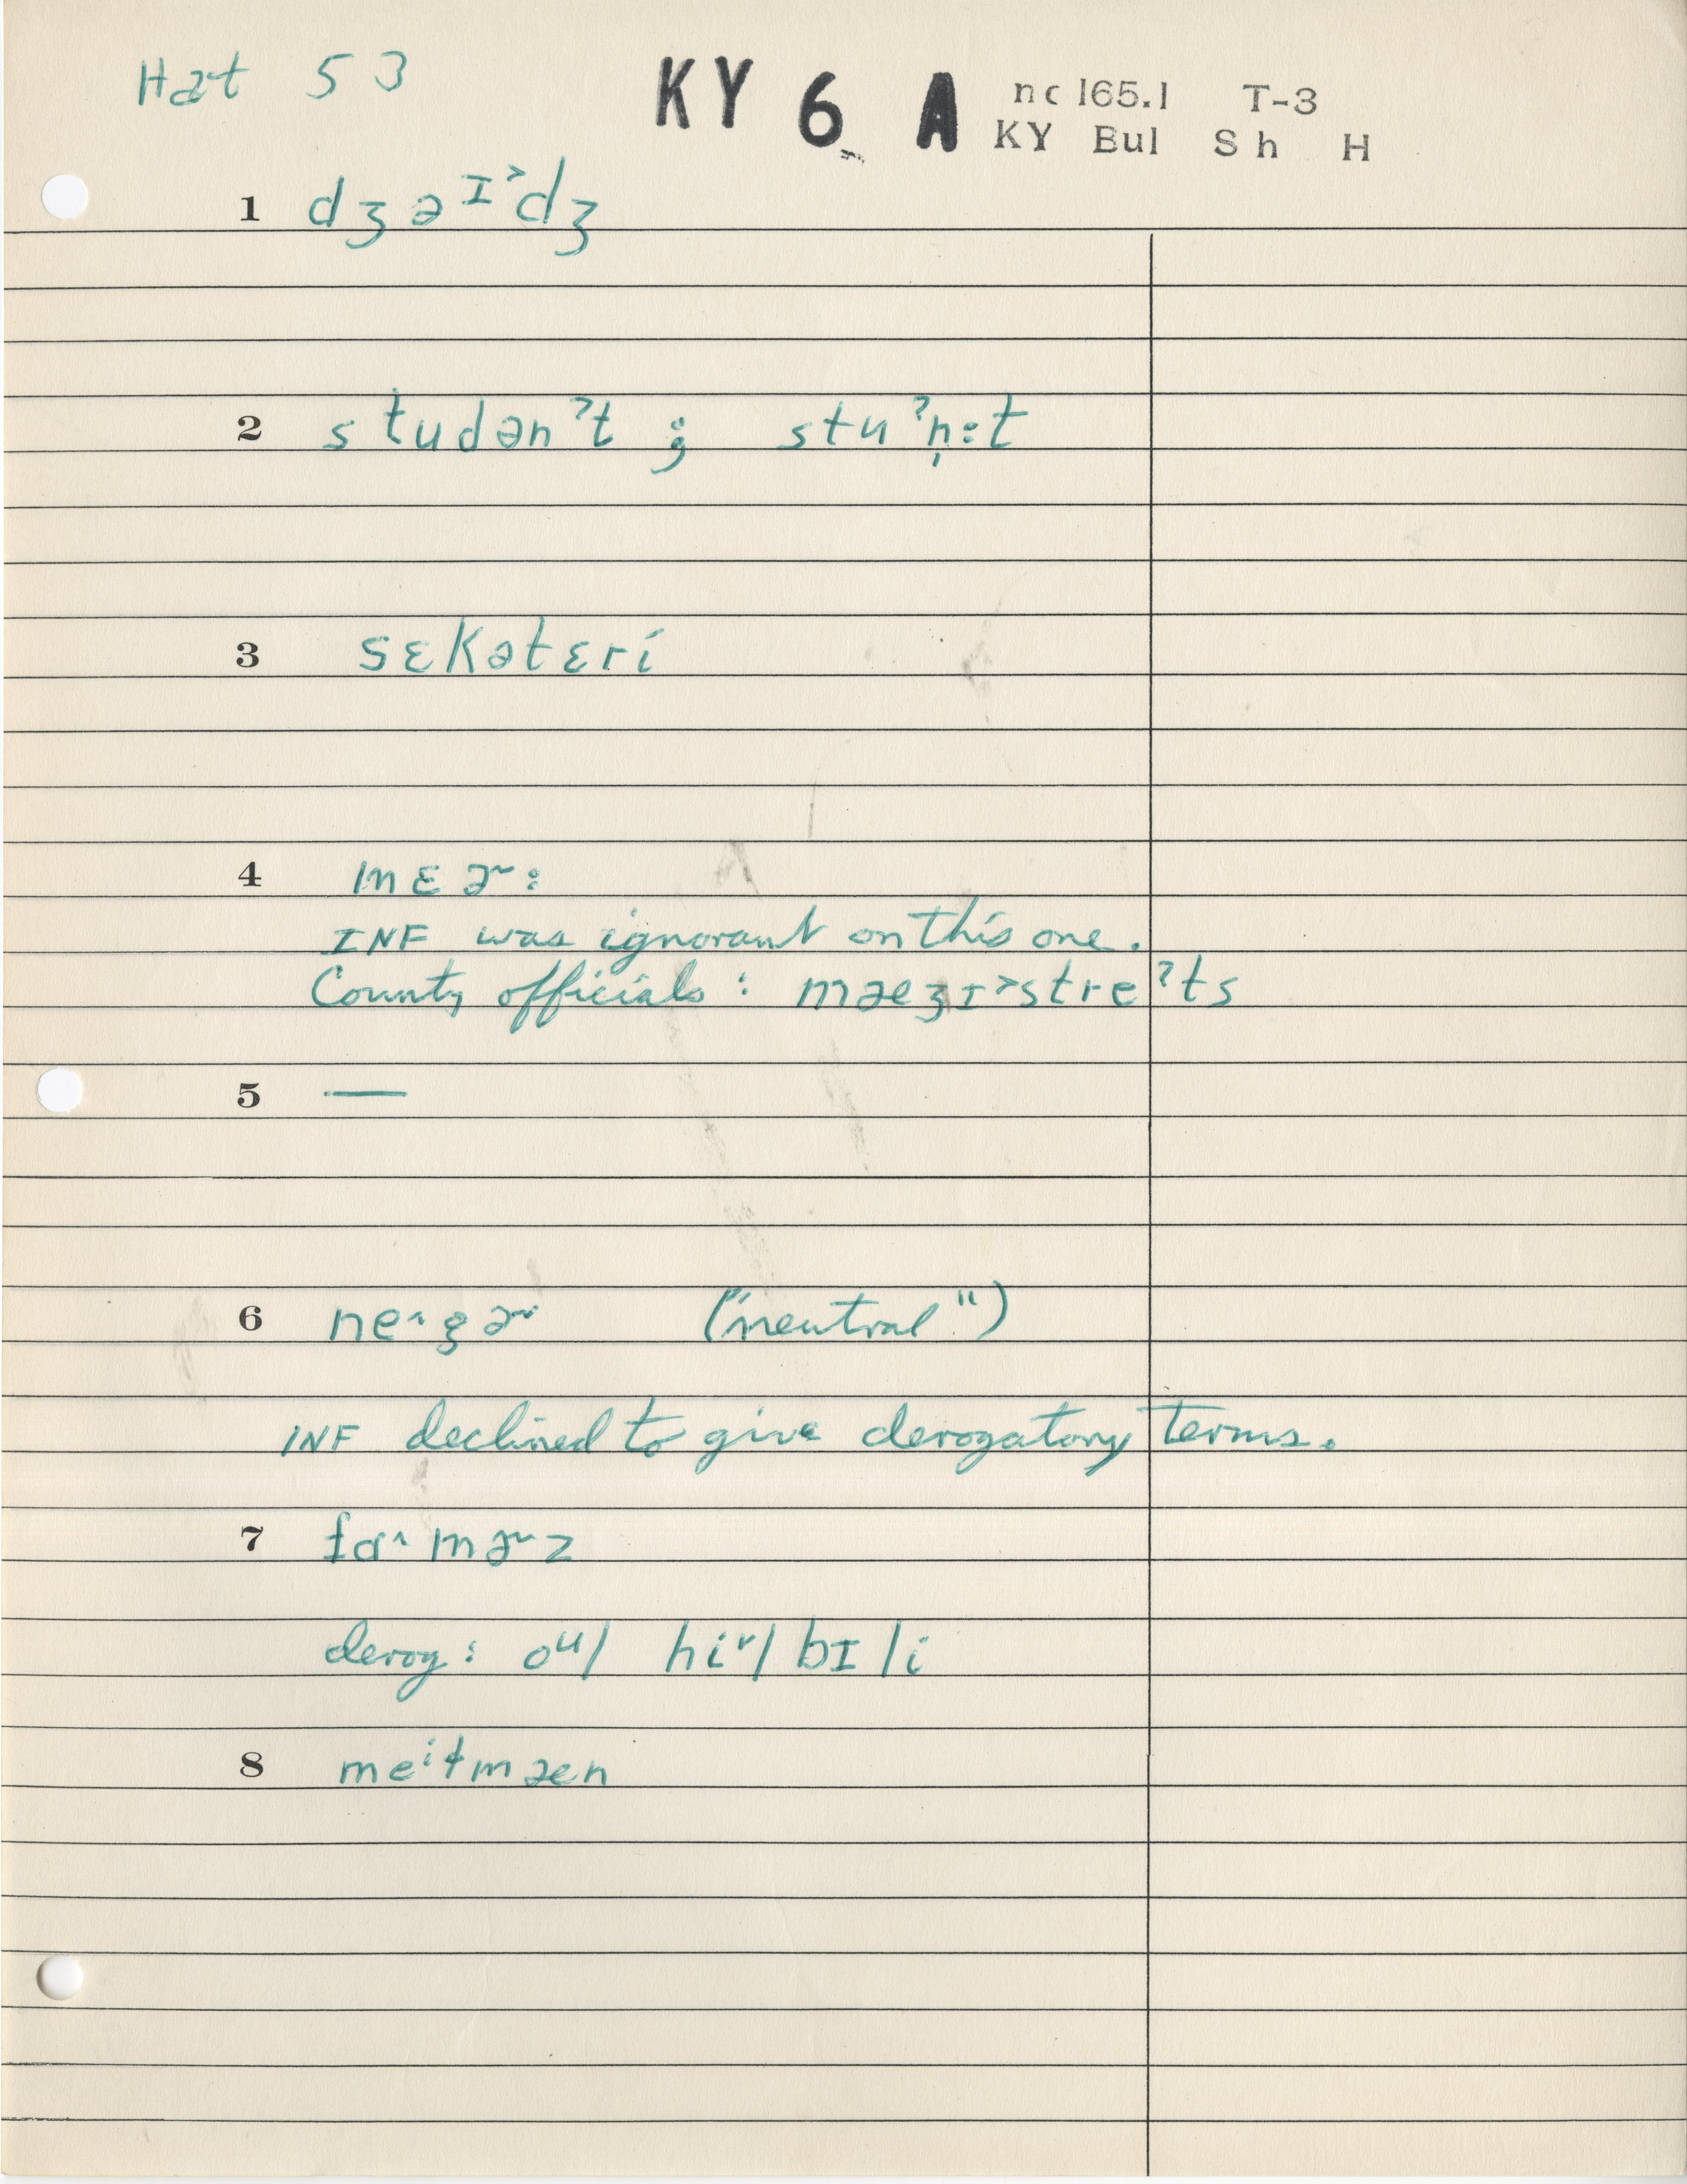 Hat 53
KY 6 A nc 165.1 T-3
KY Bul Sh H
1 dʒəɪ˃dʒ
2 studənˀt ; stuˀn̩:t
3 sɛkətɛri
4 mɛɚ:
INF was ignorant on this one.
County officials : mæʒɪ˃streˀts
5 —
6 ne˄gɚ ("neutral")
INF declined to give derogatory terms.
7 fɑ˄mɚz
derog: oᵘl hi˅lbɪli
8 meⁱɫmæn